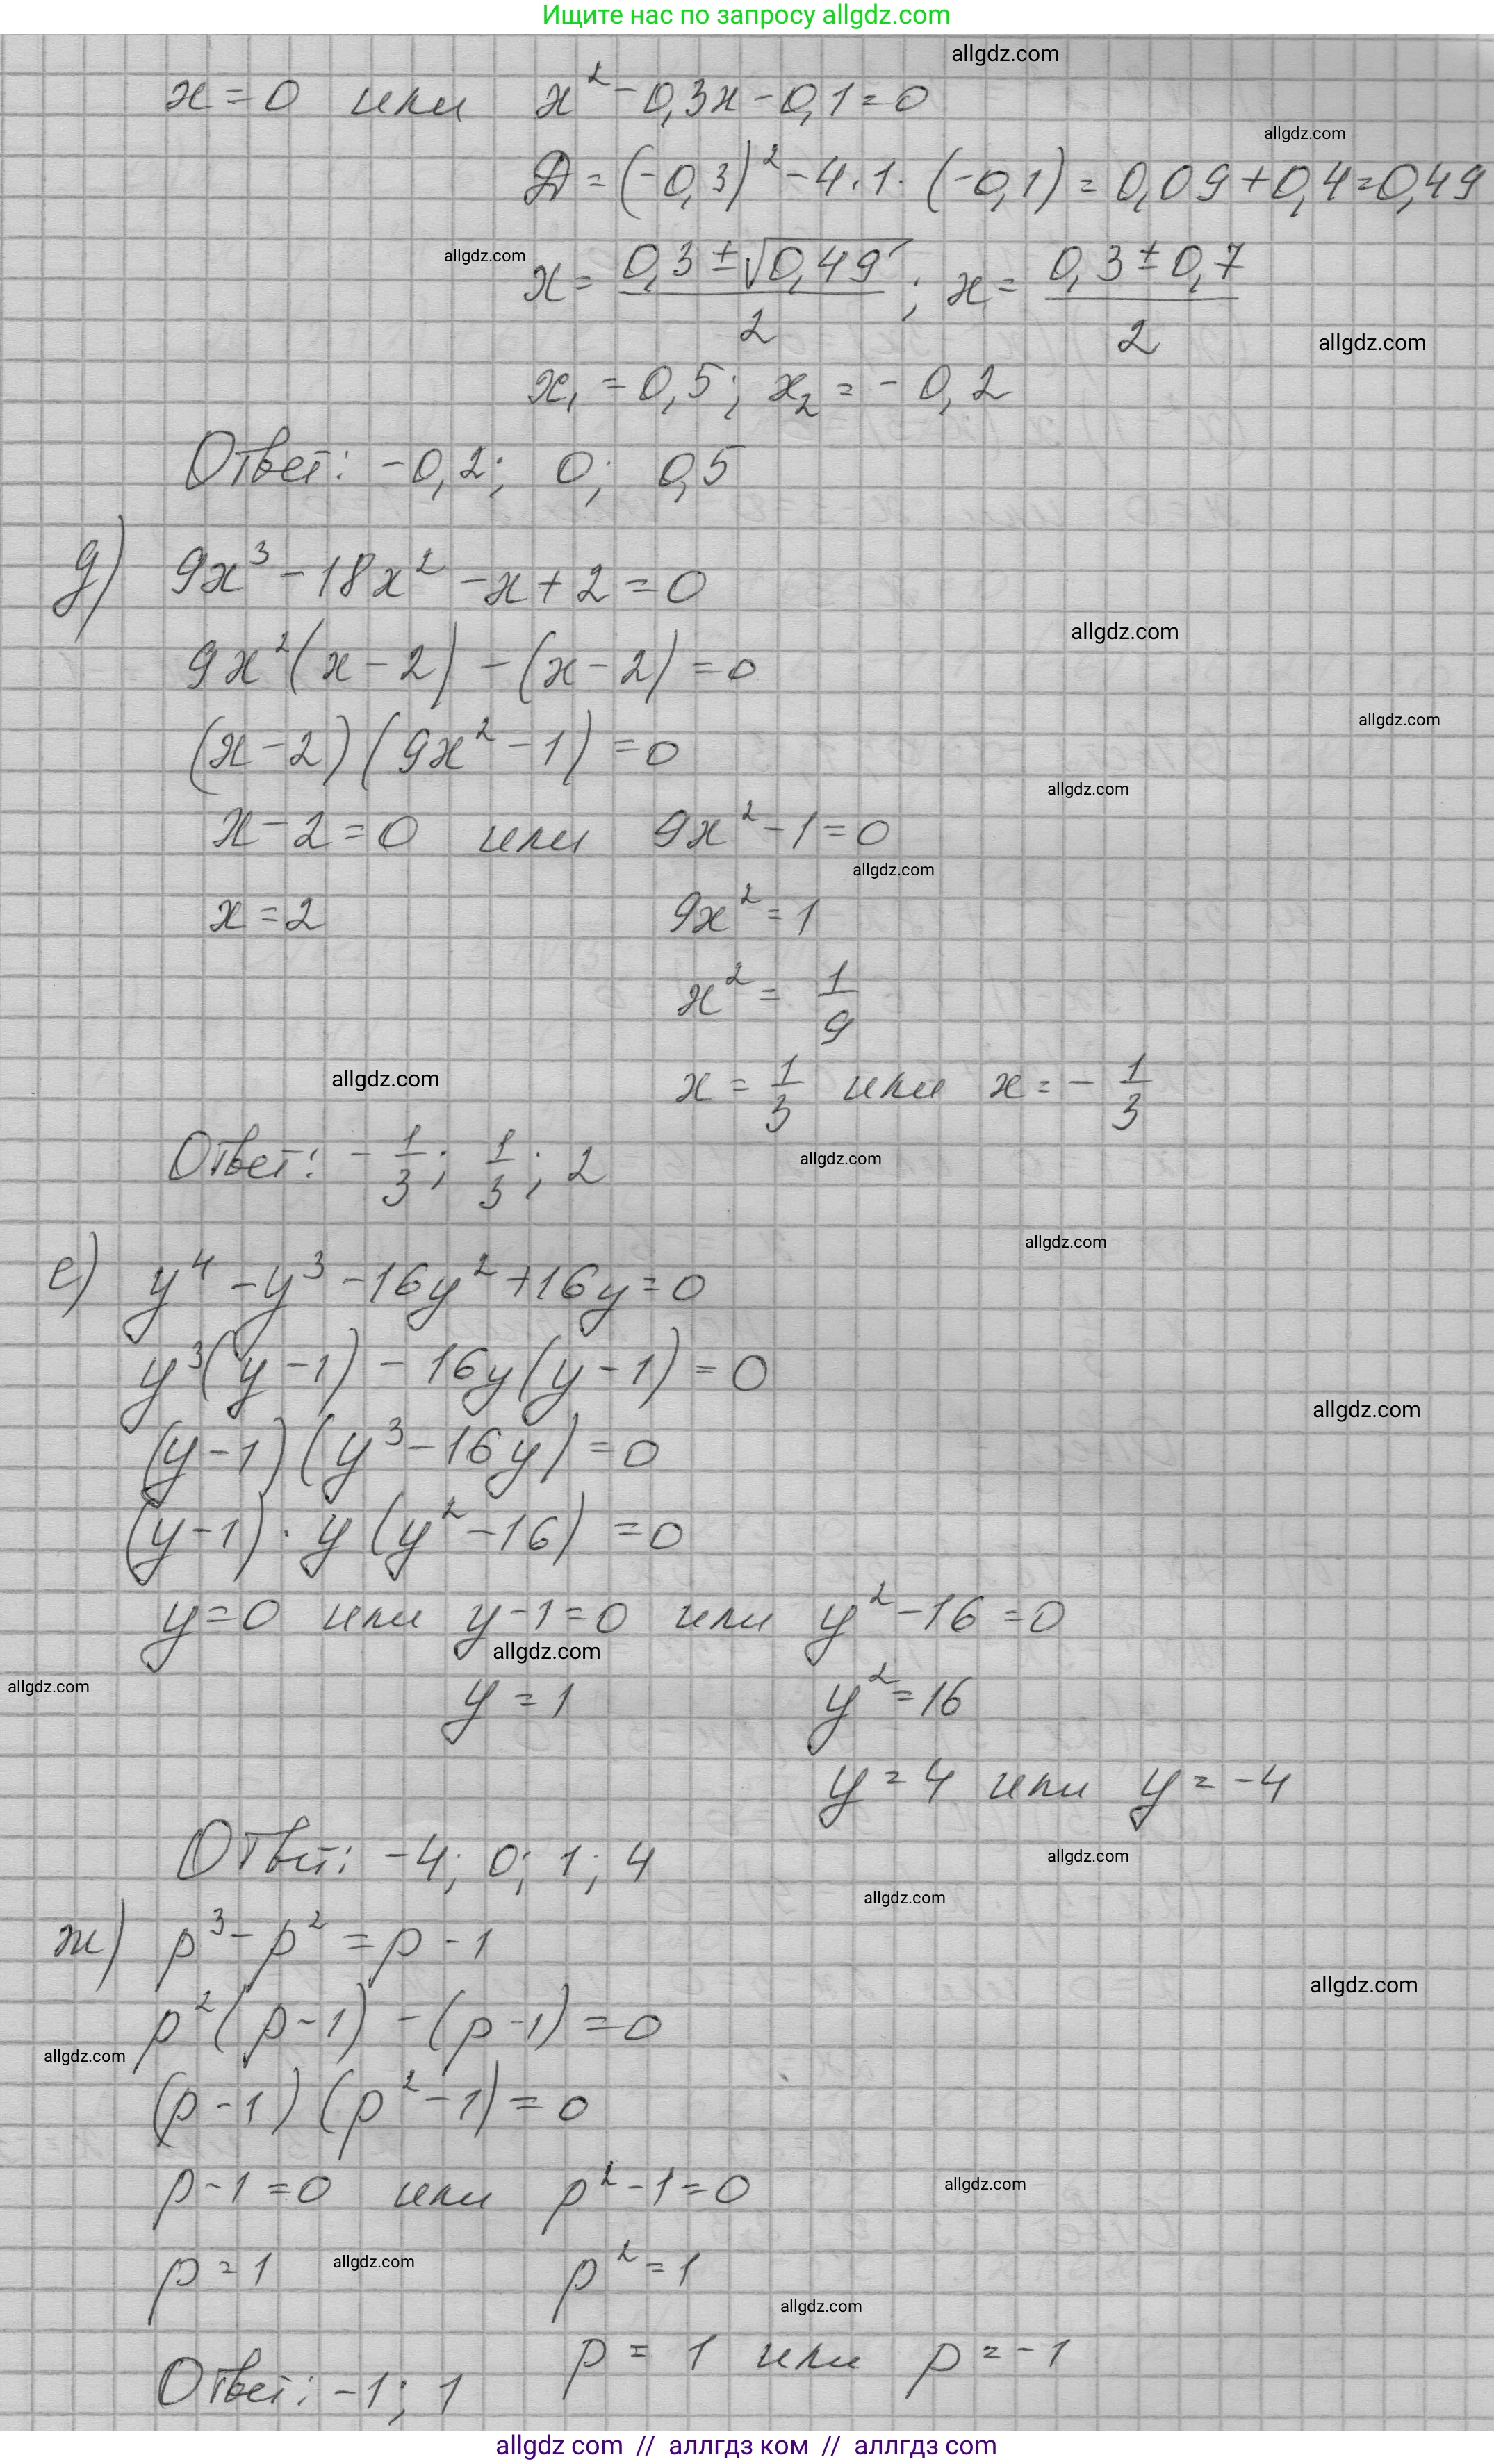 Ищите нас по запросу allgdz.com
allgdz.com
x = 0 или x² - 0,3x - 0,1 = 0
allgdz.com
D = (-0,3)² - 4·1·(-0,1) = 0,09 + 0,4 = 0,49
allgdz.com
x = (0,3 ± √0,49)/2 ; x = (0,3 ± 0,7)/2
allgdz.com
x₁ = 0,5; x₂ = -0,2
Ответ: -0,2; 0; 0,5
д) 9x³ - 18x² - x + 2 = 0
allgdz.com
9x²(x - 2) - (x - 2) = 0
allgdz.com
(x - 2)(9x² - 1) = 0
allgdz.com
x - 2 = 0 или 9x² - 1 = 0
allgdz.com
x = 2 9x² = 1
x² = 1/9
allgdz.com
x = 1/3 или x = - 1/3
allgdz.com
Ответ: - 1/3; 1/3; 2
allgdz.com
е) y⁴ - y³ - 16y² + 16y = 0
y³(y - 1) - 16y(y - 1) = 0
allgdz.com
(y - 1)(y³ - 16y) = 0
(y - 1)·y(y² - 16) = 0
allgdz.com
y = 0 или y - 1 = 0 или y² - 16 = 0
allgdz.com
allgdz.com
y = 1 y² = 16
y = 4 или y = -4
allgdz.com
Ответ: -4; 0; 1; 4
allgdz.com
ж) p³ - p² = p - 1
allgdz.com
p²(p - 1) - (p - 1) = 0
allgdz.com
(p - 1)(p² - 1) = 0
p - 1 = 0 или p² - 1 = 0
allgdz.com
p = 1 p² = 1
allgdz.com
allgdz.com
p = 1 или p = -1
Ответ: -1; 1
allgdz com // аллгдз ком // аллгдз com